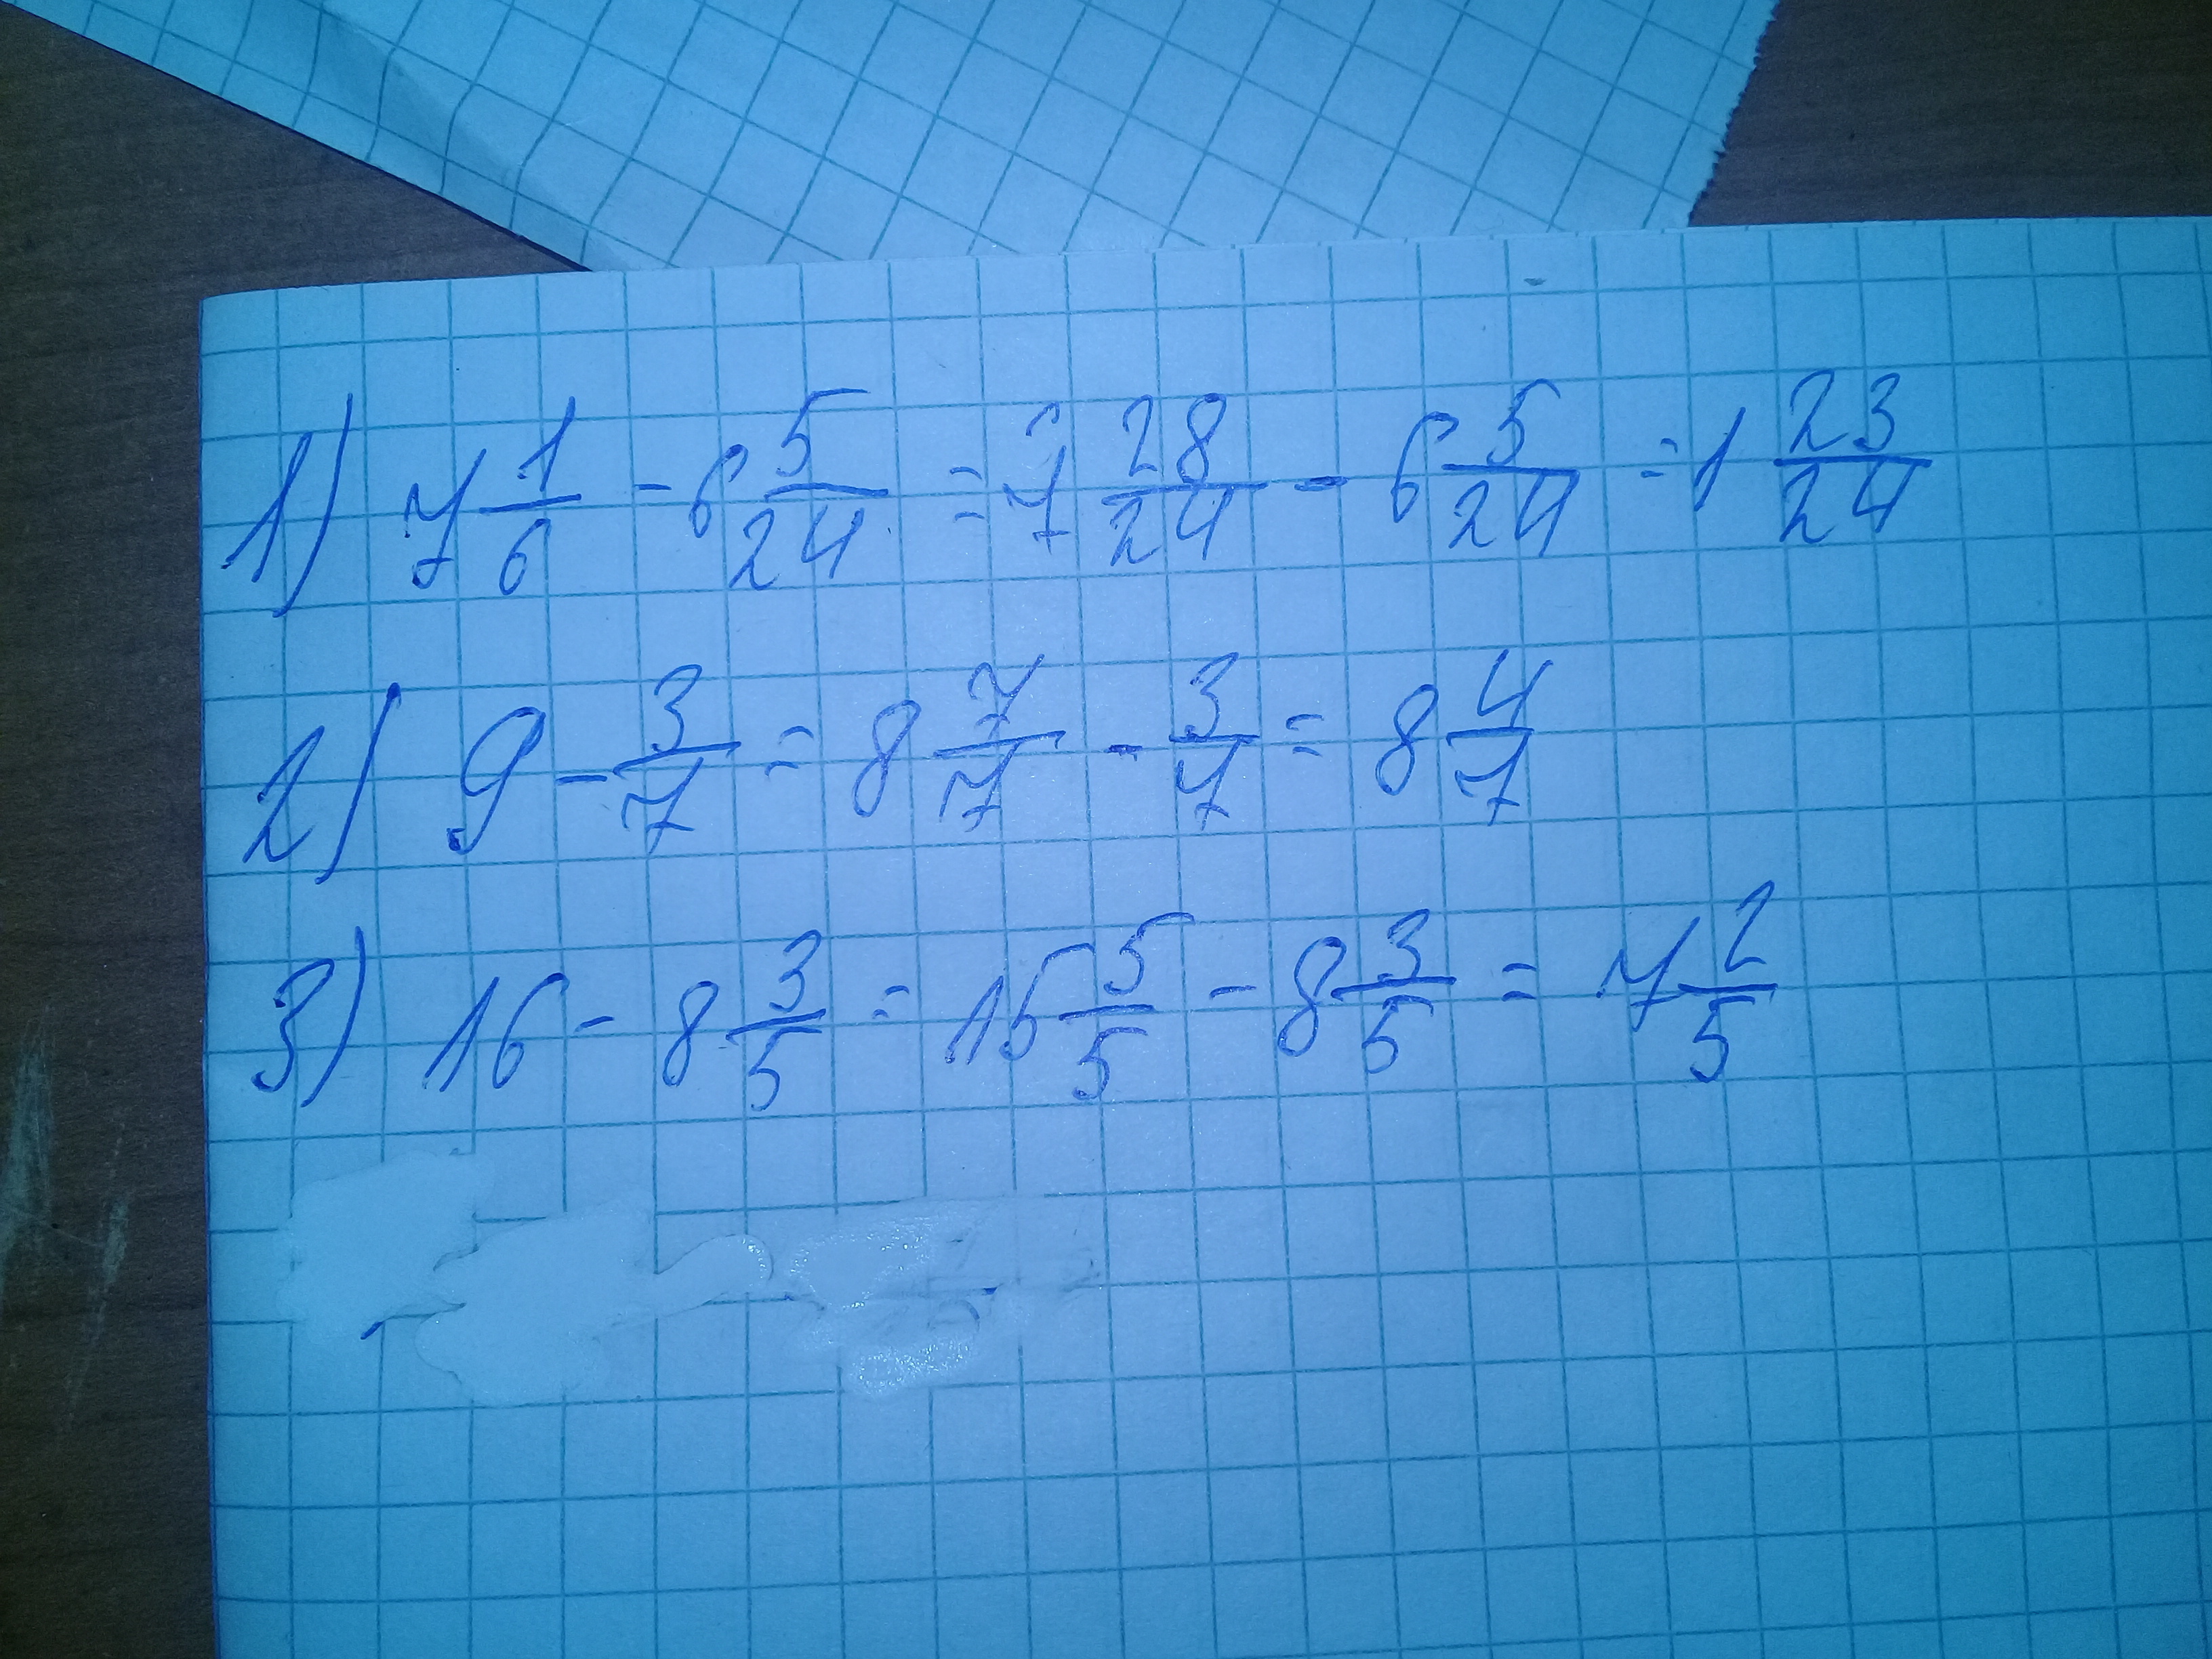 1) 7 1/6 - 6 5/24 = 7 28/24 - 6 5/24 = 1 23/24
2) 9 - 3/7 = 8 7/7 - 3/7 = 8 4/7
3) 16 - 8 3/5 = 15 5/5 - 8 3/5 = 7 2/5